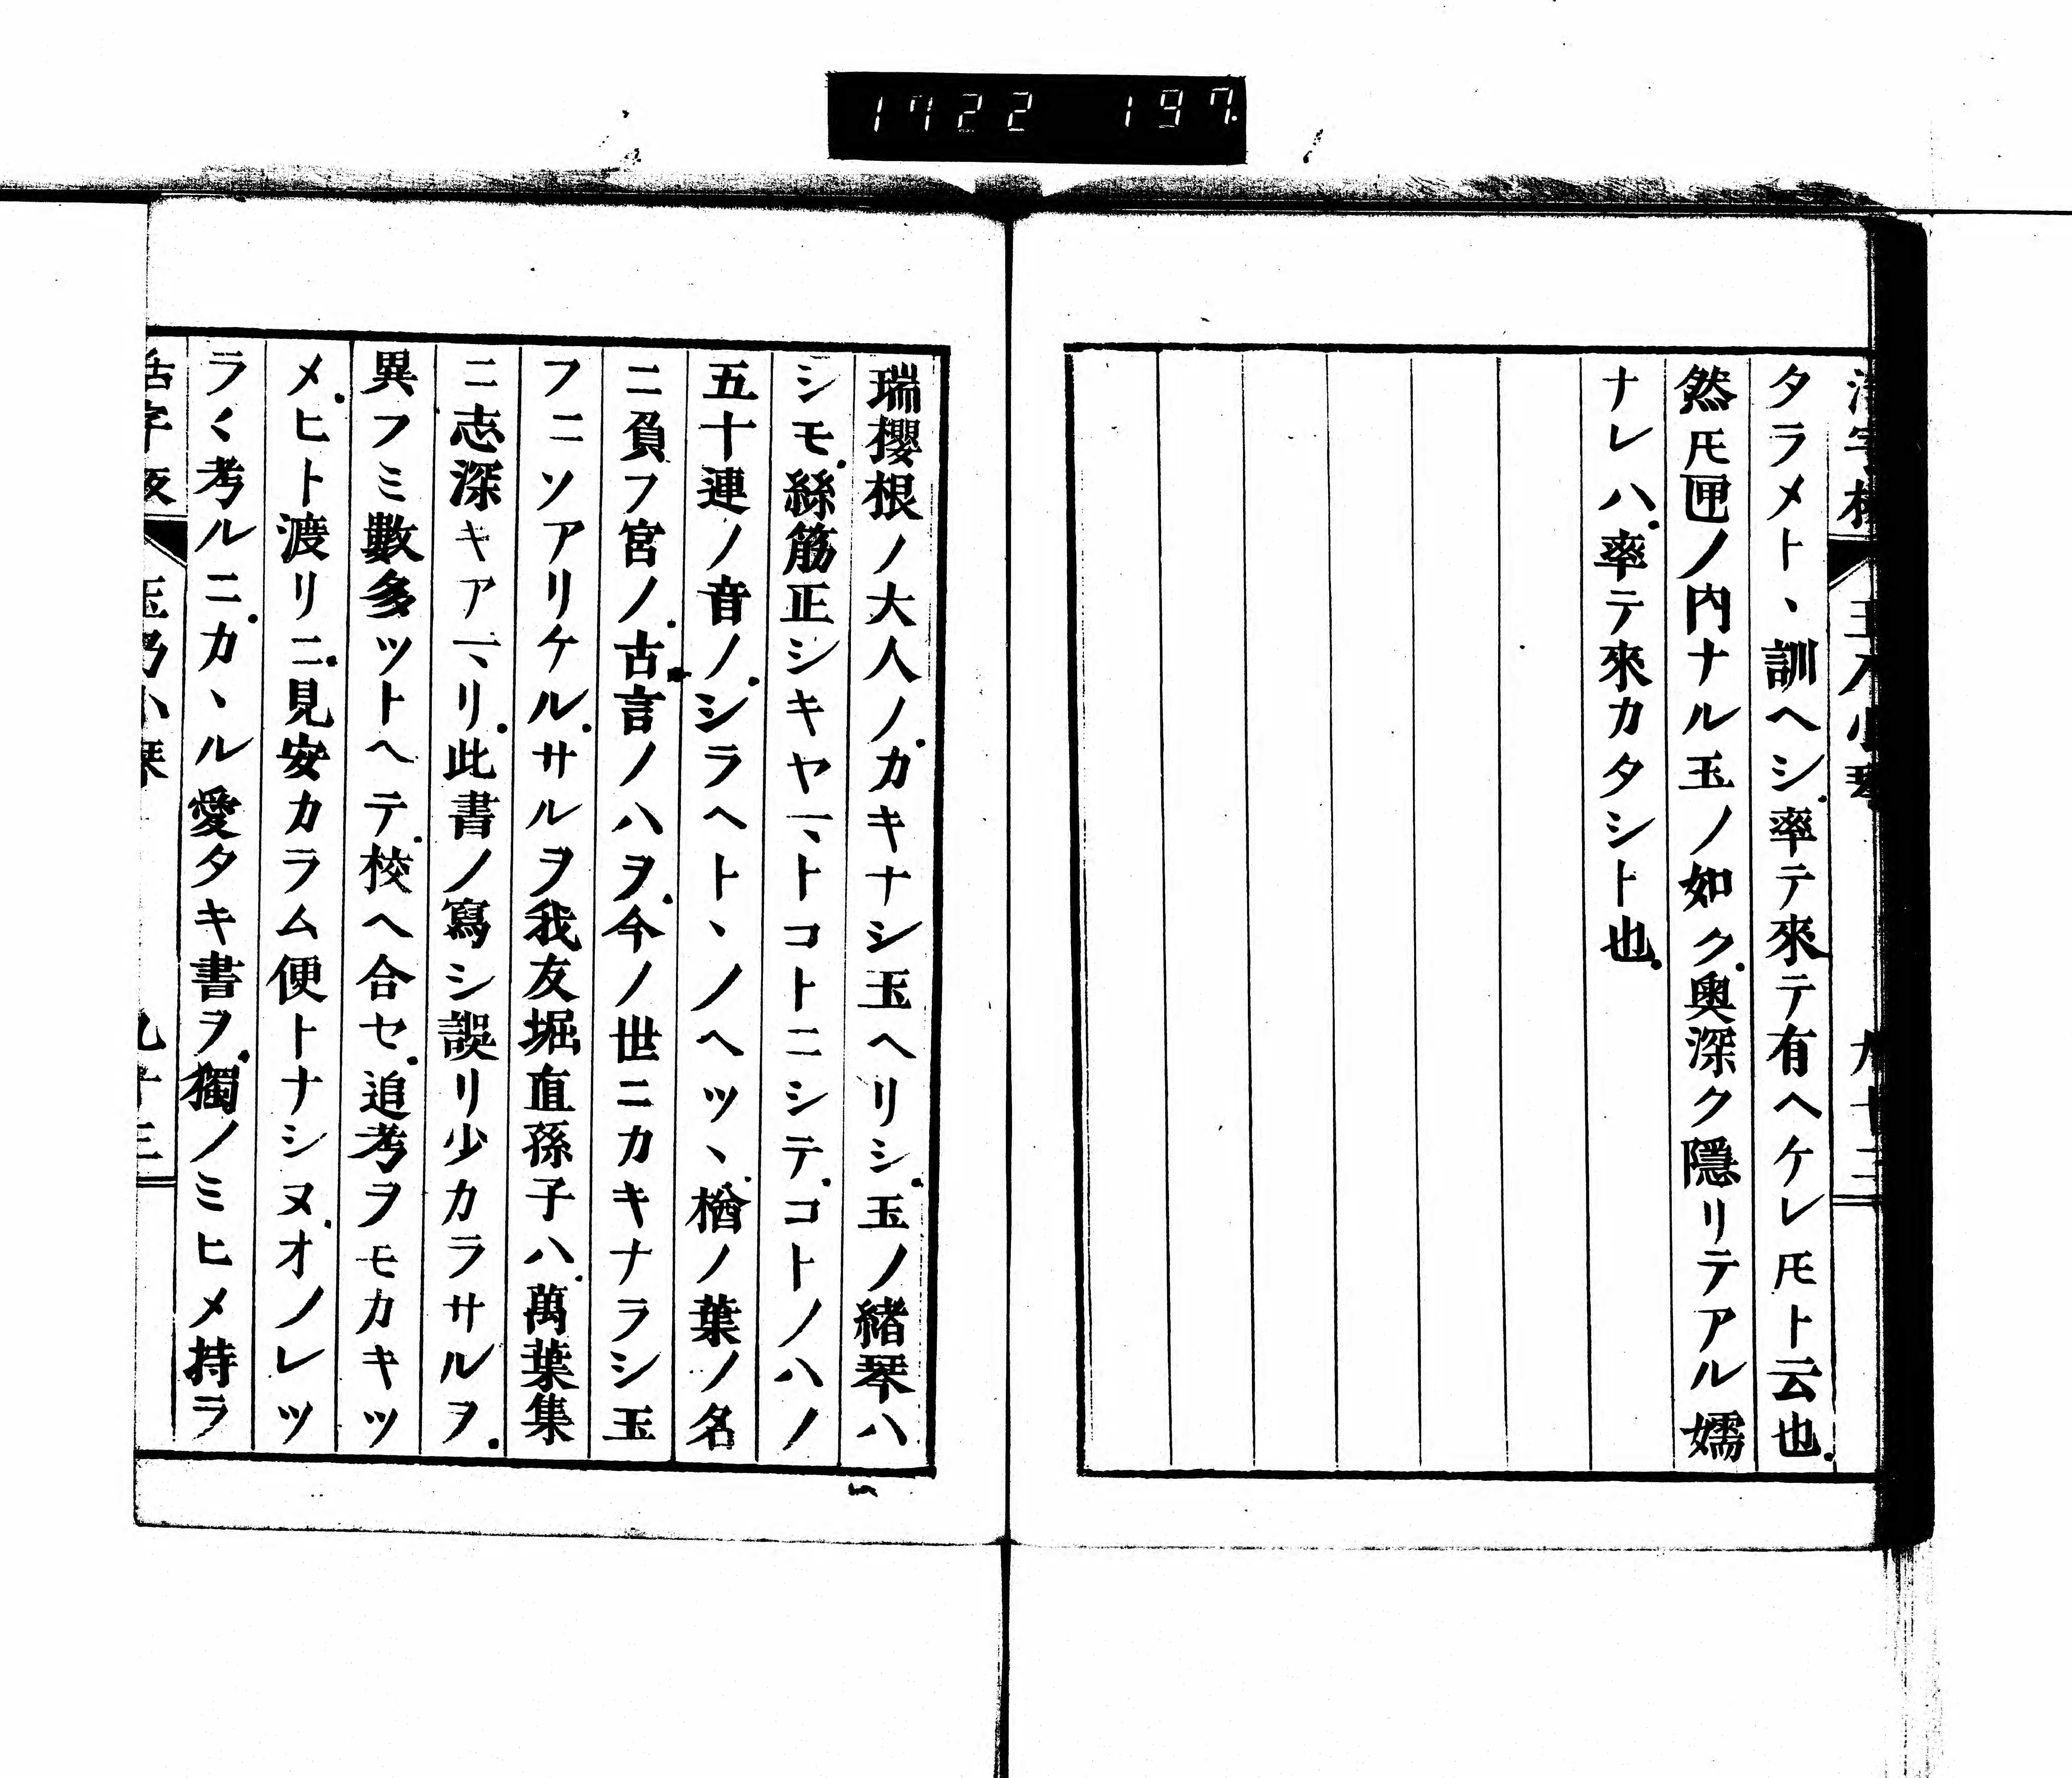 1722 197
タラメト、訓ヘシ.率テ來テ有ヘケレ𪜈ト云也.
然𪜈匣ノ內ナル玉ノ如ク.奥深ク隱リテアル孺
ナレハ.率テ來カタシト也.
瑞櫻根ノ大人ノ.カキナシ玉ヘリシ.玉ノ緒琴ハ
シモ.絲筋正シキヤヿ、トコトニシテ.コトノハノ
五十連ノ音ノ.シラヘト、ノヘツ、.楢ノ葉ノ名
ニ負フ宮ノ.古言ノハヲ.今ノ世ニカキナラシ玉
フニソアリケル.サルヲ我友堀直孫子ハ.萬葉集
ニ志深キアヿ、リ.此書ノ寫シ誤リ少カラサルヲ.
異フミ數多ツトヘテ.校ヘ合セ.追考ヲモカキツ
メ.ヒト渡リニ.見安カラム便トナシヌ.オノレツ
ラ〱考ルニ.カ、ル愛タキ書ヲ.獨ノミヒメ持ラ
活字板 玉乃小琴 九十三